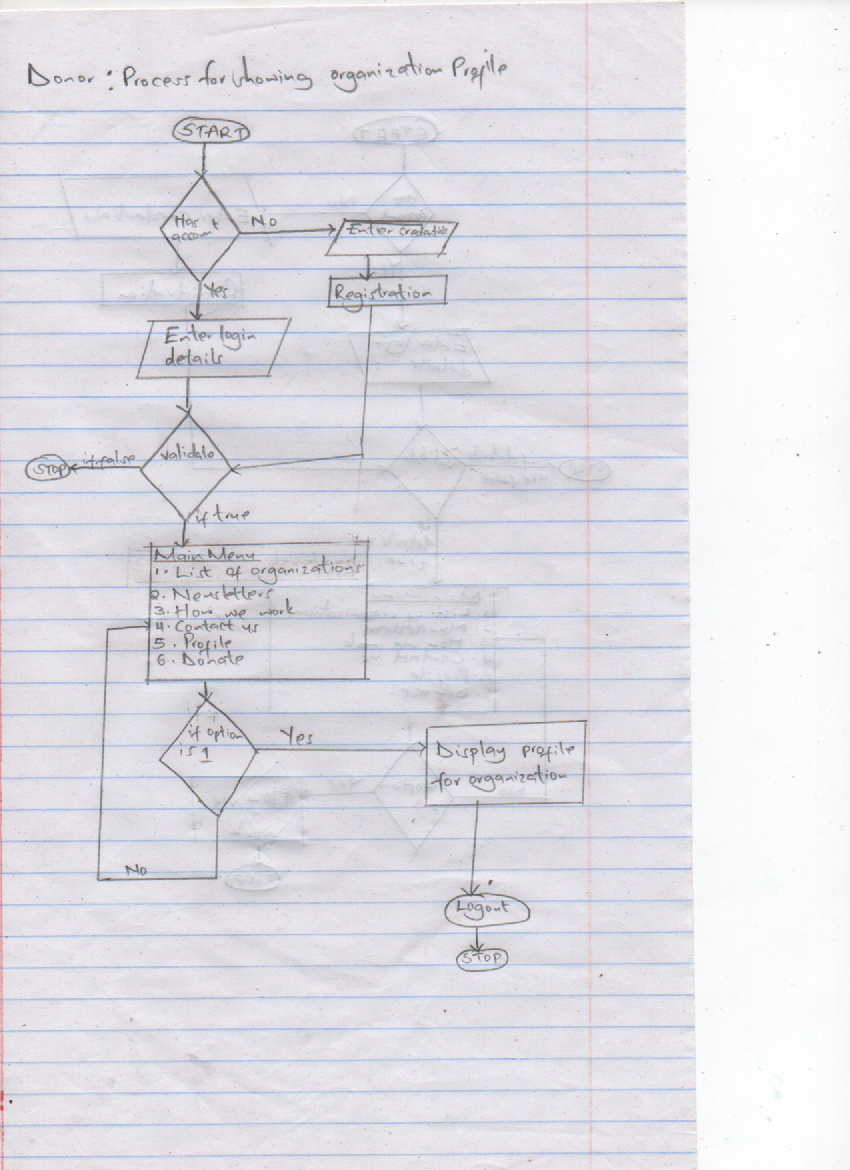 Donor : Process for showing organization Profile
START
Has
account
No
Enter credentials
Yes
Registration
Enter login
details
validate
if false
STOP
if true
Main Menu
1. List of organizations
2. Newsletters
3. How we work
4. Contact us
5. Profile
6. Donate
if option
is 1
Yes
Display profile
for organization
No
Logout
STOP